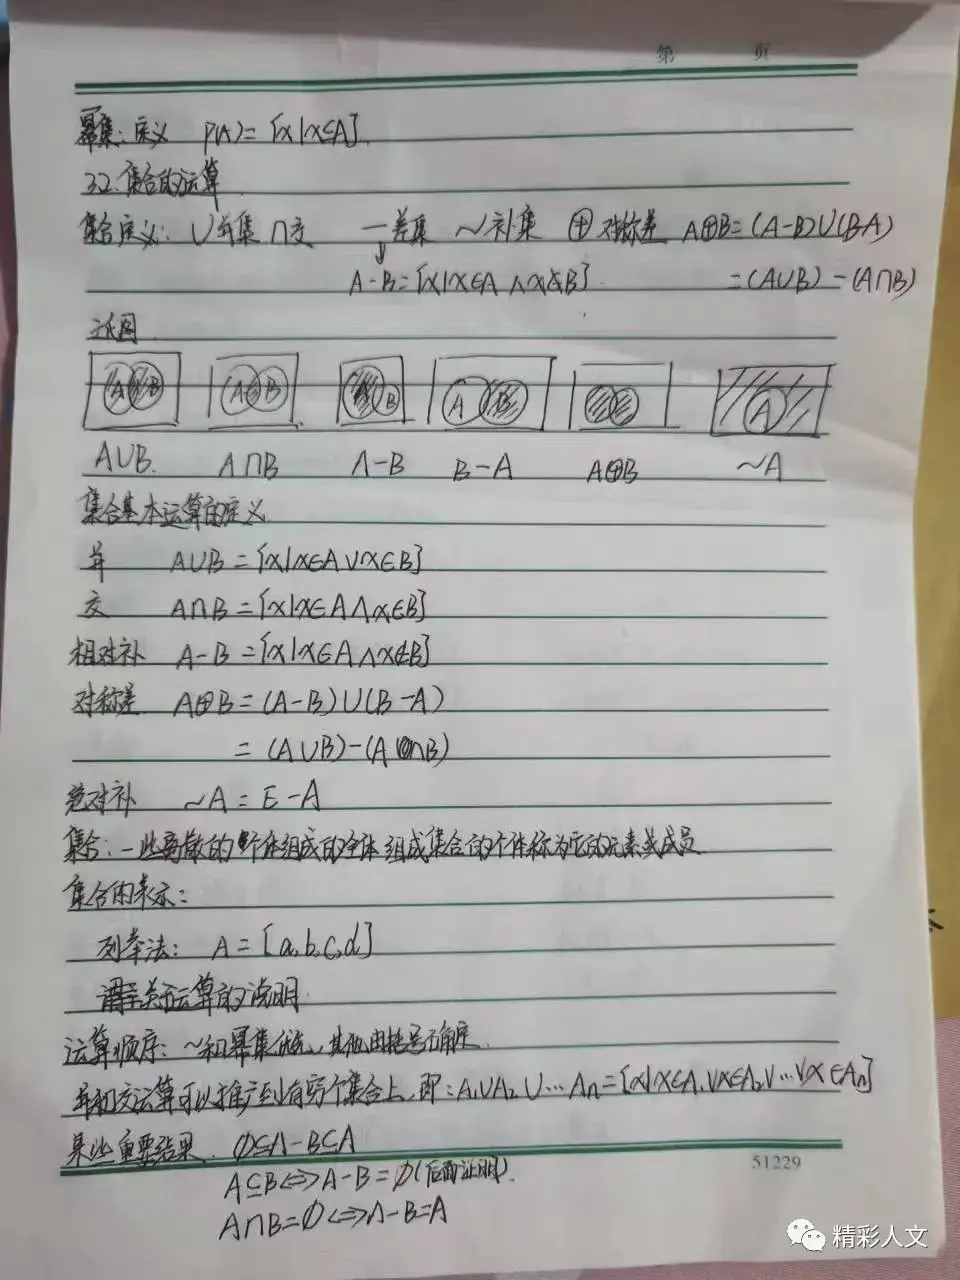 第 页
幂集:定义 P(A)={x|x⊆A}
3.2.集合的运算
集合定义:∪并集 ∩交 —差集 ~补集 ⊕对称差 A⊕B=(A-B)∪(B-A)
A-B={x|x∈A∧x∉B} =(A∪B)-(A∩B)
文氏图
A B A B A B A B A
A∪B. A∩B A-B B-A A⊕B ~A
集合基本运算的定义
并 A∪B={x|x∈A∨x∈B}
交 A∩B={x|x∈A∧x∈B}
相对补 A-B={x|x∈A∧x∉B}
对称差 A⊕B=(A-B)∪(B-A)
=(A∪B)-(A∩B)
绝对补 ~A=E-A
集合:一些离散的个体组成的全体 组成集合的个体称为它的元素或成员
集合的表示:
列举法: A={a,b,c,d}
关于运算的说明
运算顺序:~和幂集优先,其他由括号确定
并和交运算可以推广到有穷个集合上,即:A₁∪A₂∪…Aₙ={x|x∈A₁∨x∈A₂∨…∨x∈Aₙ}
某些重要结果 ∅⊆A-B⊆A
51229
A⊆B⇔A-B=∅(后面证明).
A∩B=∅⇔A-B=A
精彩人文